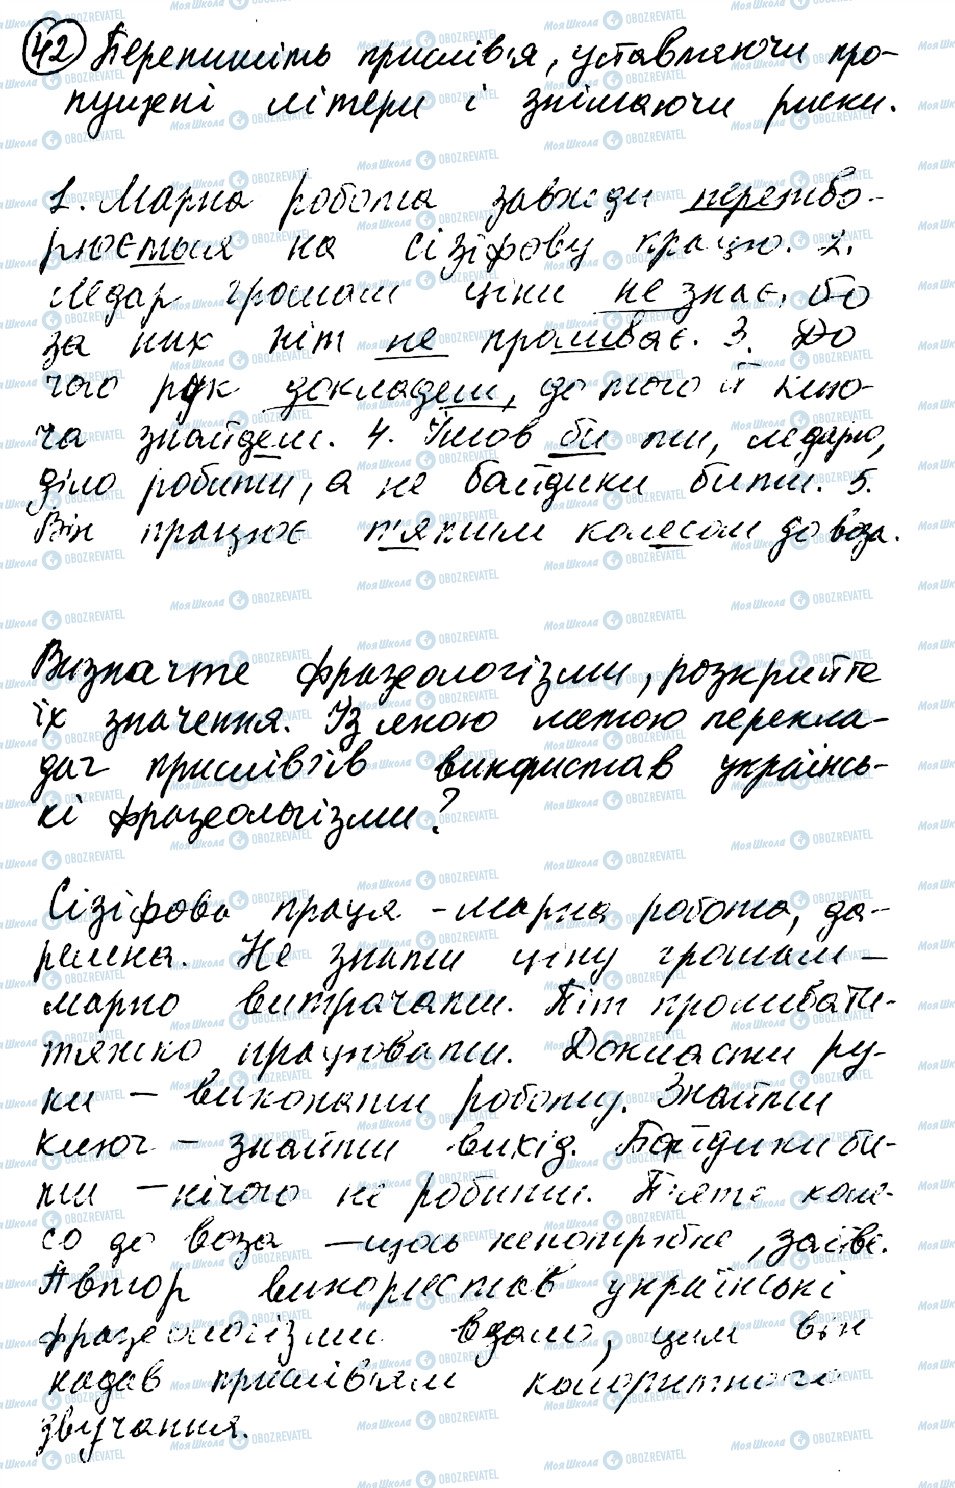 42 Перепишіть прислів'я, уставляючи про-
пущені літери і знімаючи риски.
1. Марна робота завжди перетво-
рюється на сізіфову працю. 2.
Ледар грошам ціни не знає, бо
за них піт не проливає. 3. До
чого рук докладеш, до того й клю-
ча знайдеш. 4. Умов би ти, ледарю,
діло робити, а не байдики бити. 5.
Він працює п'ятим колесом до воза.
Визначте фразеологізми, розкрийте
їх значення. Із якою метою перекла-
дач прислів'їв використав українсь-
кі фразеологізми?
Сізіфова праця - марна робота, да-
ремна. Не знати ціну грошам –
марно витрачати. Піт проливати -
тяжко працювати. Докласти ру-
ки – виконати роботу. Знайти
ключ – знайти вихід. Байдики би-
ти – нічого не робити. П'яте коле-
со до воза – щось непотрібне, зайве.
Автор використав українські
фразеологізми вдало, цим він
надав прислів'ям колоритного
звучання.